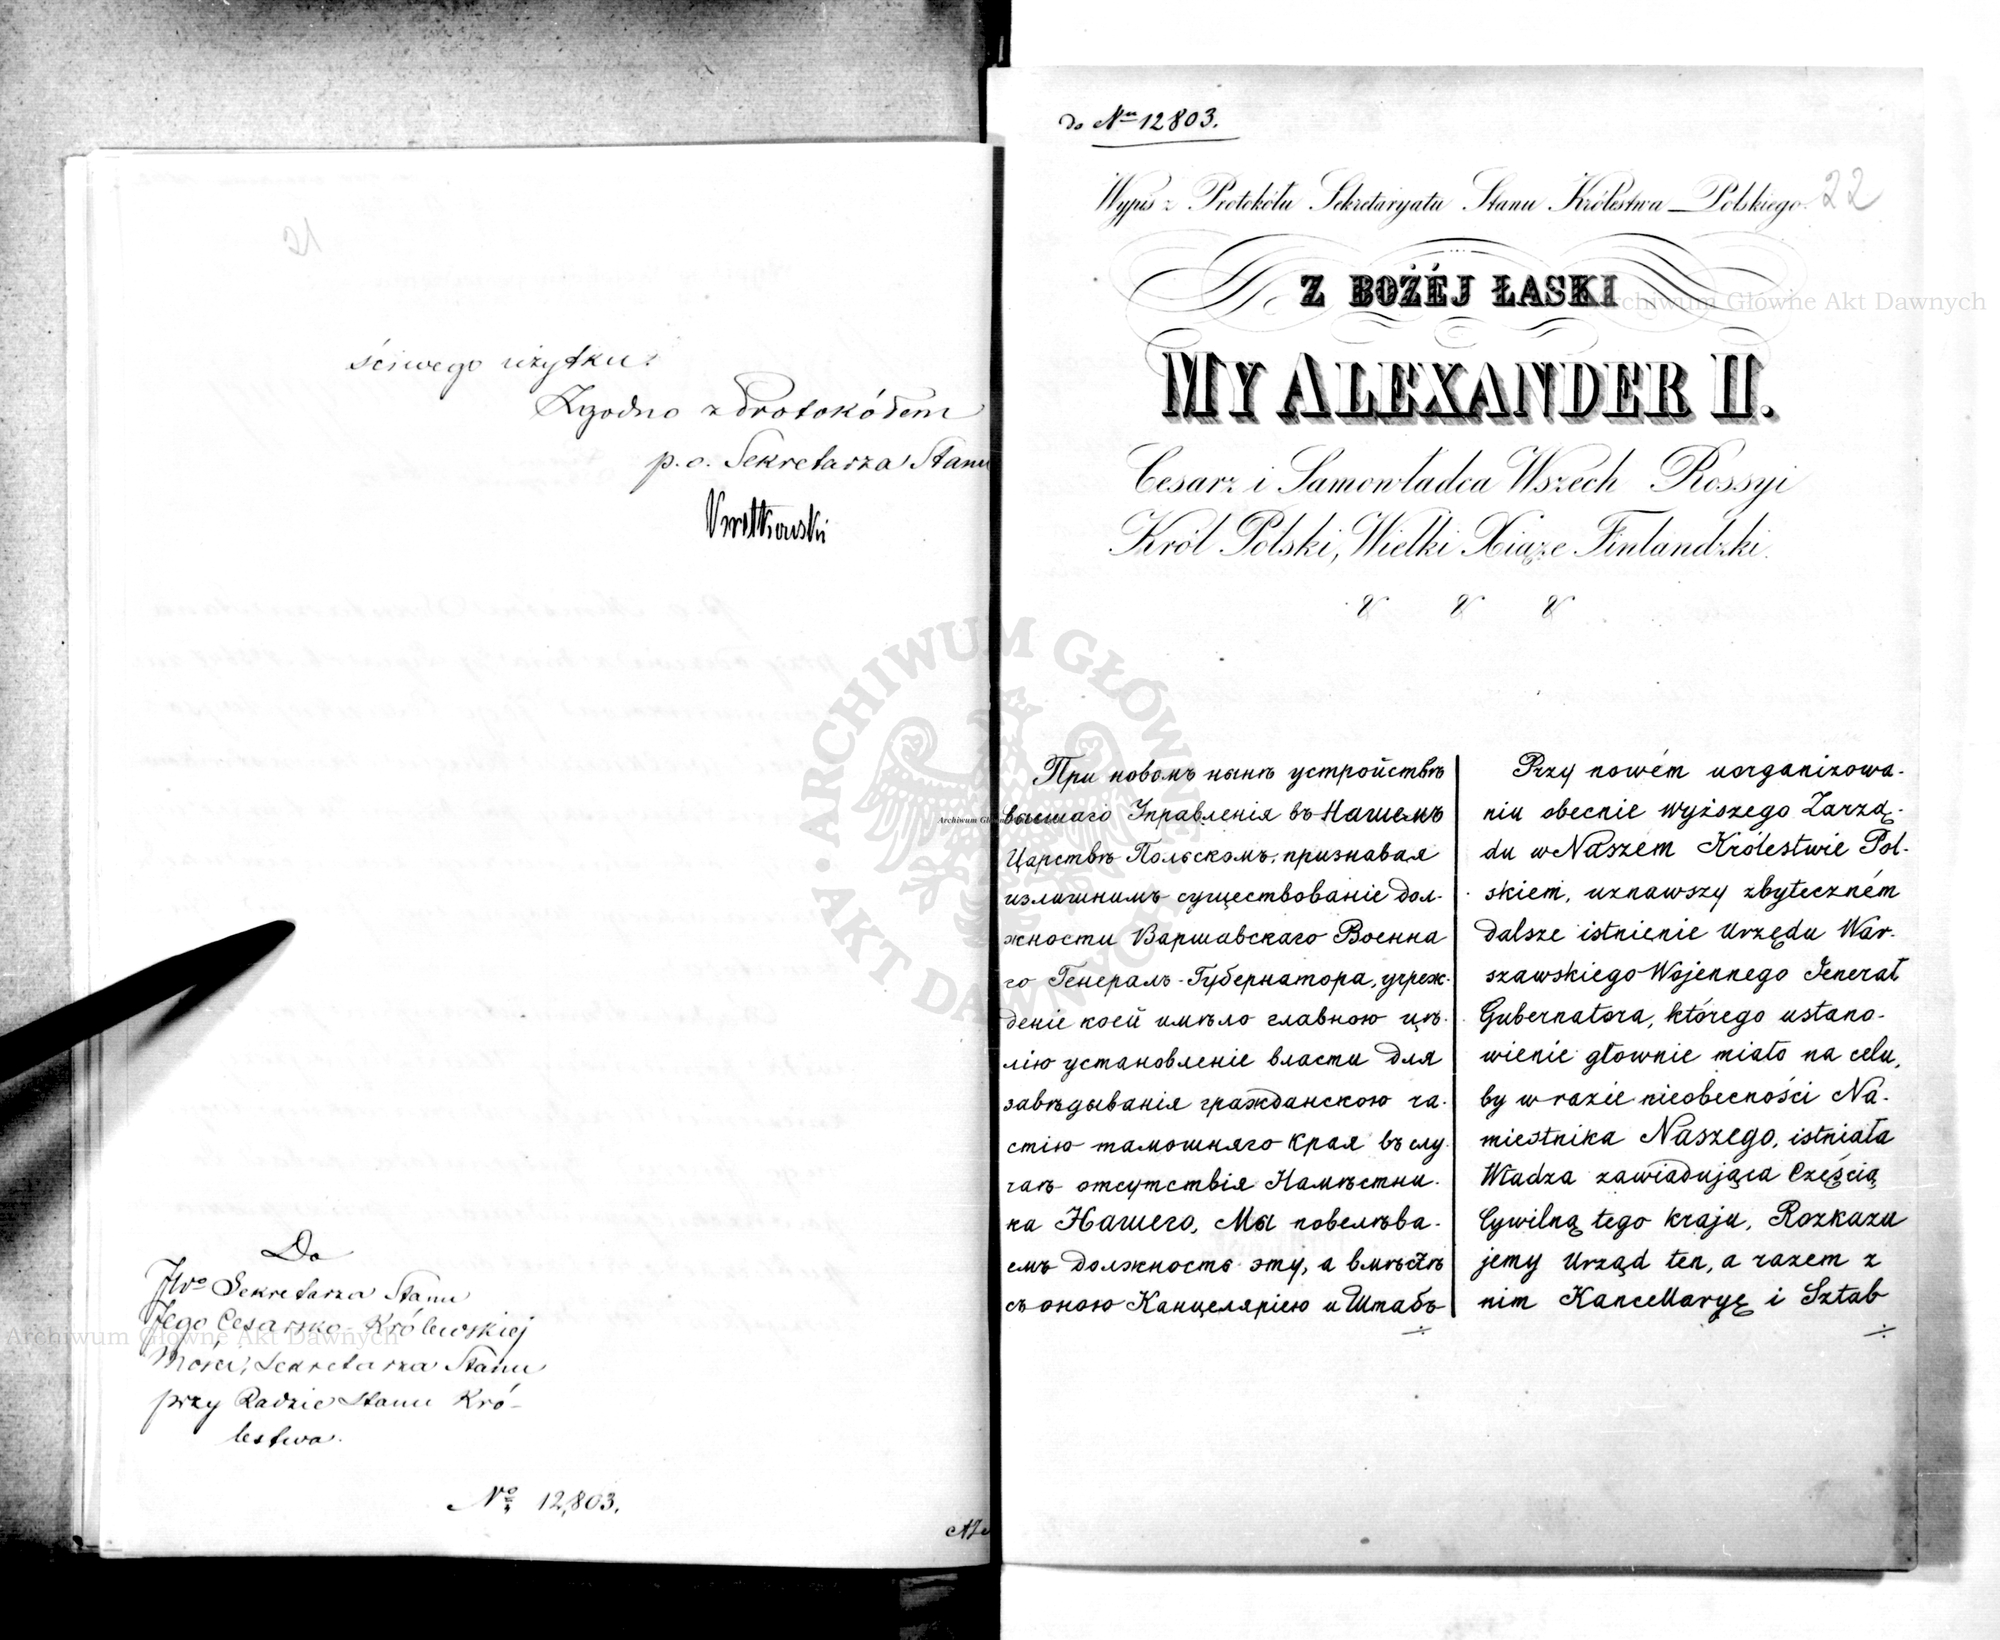 ściwego użytku.
Zgodno z Protokółem
p.o. Sekretarza Stanu
Do
JWo Sekretarza Stanu
Jego Cesarsko-Królewskiej
Mości, Sekretarza Stanu
przy Radzie Stanu Kró-
lestwa.
No 12,803.
do Nru 12803.
Wypis z Protokółu Sekretaryatu Stanu Królestwa Polskiego.
22
Z BOŻÉJ ŁASKI
MY ALEXANDER II.
Cesarz i Samowładca Wszech Rossyi
Król Polski, Wielki Xiąże Finlandzki.
При новомъ нынѣ устройствѣ
высшаго Управленія въ Нашемъ
Царствѣ Польскомъ, признавая
излишнимъ существованіе дол-
жности Варшавскаго Военна
го Генералъ-Губернатора, учреж-
деніе коей имѣло главною цѣ-
лію установленіе власти для
завѣдыванія гражданскою ча-
стію тамошняго края въ слу
чаѣ отсутствія Намѣстни-
ка Нашего, Мы повелѣва-
емъ должность эту, а вмѣстѣ
съ оною Канцелярію и Штабъ
Przy nowém uorganizowa-
niu obecnie wyższego Zarzą-
du w Naszem Królestwie Pol-
skiem, uznawszy zbyteczném
dalsze istnienie Urzędu War-
szawskiego Wojennego Jenerał
Gubernatora, którego ustano-
wienie głownie miało na celu,
by w razie nieobecności Na-
miestnika Naszego, istniała
Władza zawiadująca Częścią
Cywilną tego kraju, Rozkazu
jemy Urząd ten, a razem z
nim Kancellaryę i Sztab
Archiwum Główne Akt Dawnych
ARCHIWUM GŁÓWNE AKT DAWNYCH
Archiwum Główne Akt Dawnych